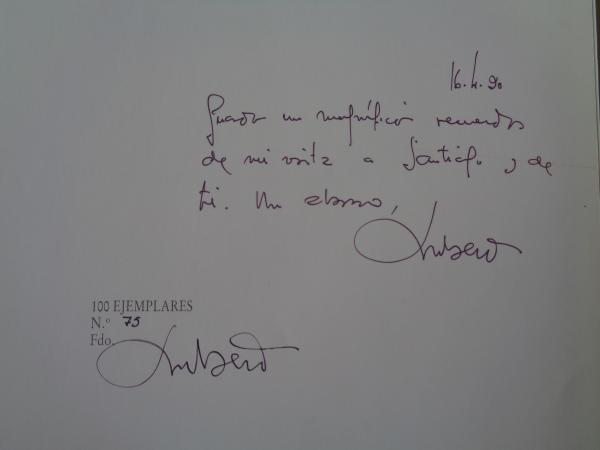 16.4.90
Guardo un magnífico recuerdo
de mi visita a Santiago y de
ti. Un abrazo,
100 EJEMPLARES
N.º 75
Fdo.